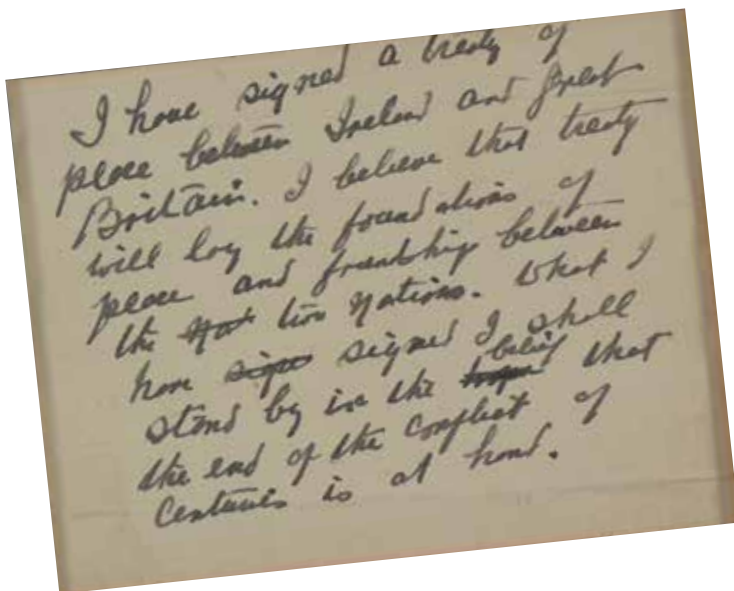 I have signed a treaty of
peace between Ireland and Great
Britain. I believe that treaty
will lay the foundations of
peace and friendship between
the two Nations. What I
have signed I shall
stand by in the belief that
the end of the conflict of
centuries is at hand.